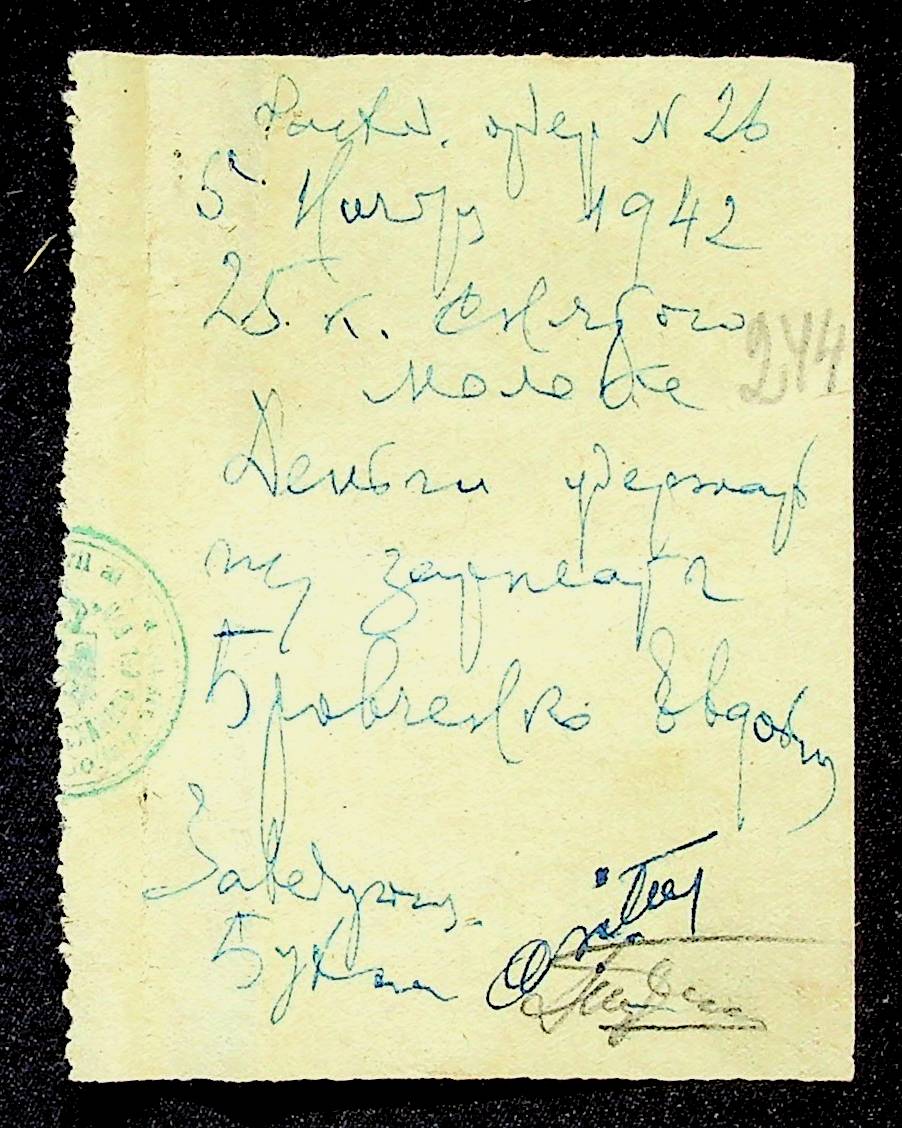 Расхд. ордер N 26
5 1942
25. к. снятого
молока
Деньги удержать
из зарплаты
244
Бровченко Евдокии
Заведующ.
Бухгал